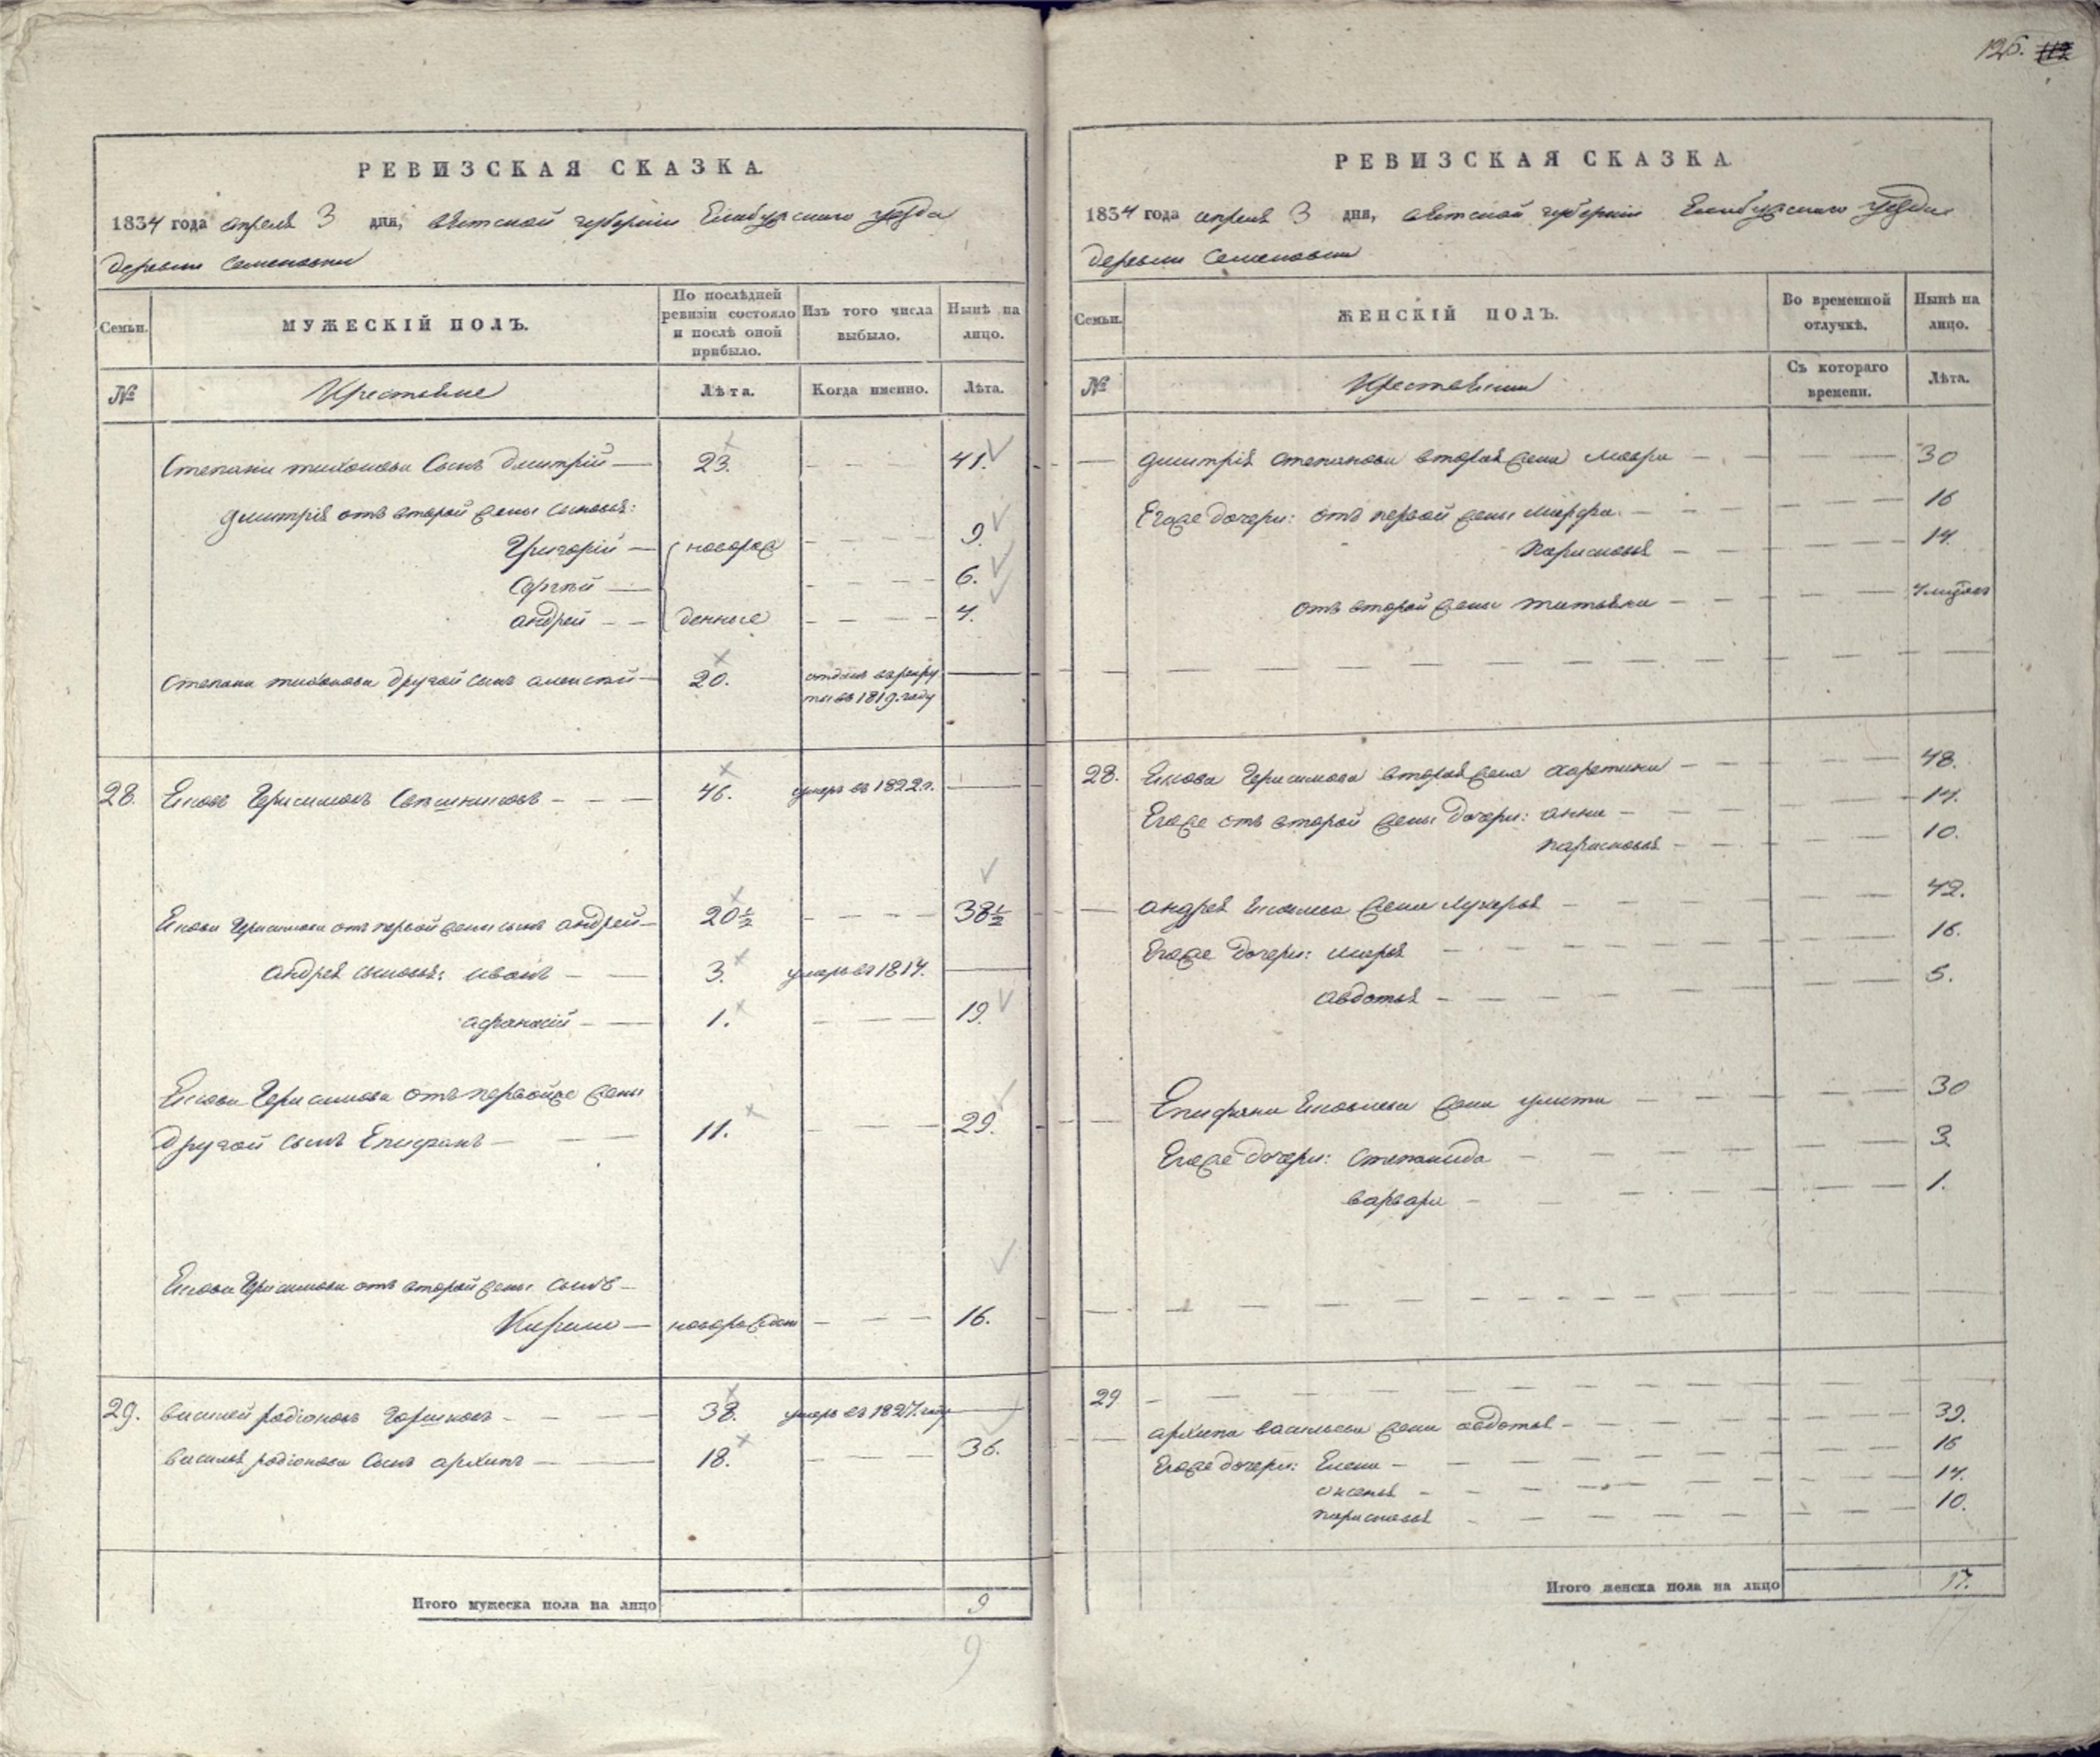 125. 112
РЕВИЗСКАЯ СКАЗКА.
1834 года апреля 3 дня, вятской губернии Елабужского уезда
деревни Семеновки
Семьи.
МУЖЕСКІЙ ПОЛЪ.
По послѣдней ревизіи состояло и послѣ оной прибыло.
Изъ того числа выбыло.
Нынѣ на лицо.
№
Крестьяне
Лѣта.
Когда именно.
Лѣта.
Степана тихонова Сынъ Дмитрій — 23. — — — 41.
Дмитрія отъ второй жены сыновья:
Григорій — новорож — — — 9.
Сергѣй — — — — 6.
андрей — — денные — — — 4.
Степана тихонова другой сынъ алексѣй — 20. отданъ в рекру
ты въ 1819. году
28. Яковъ Герасимовъ — — — 46. умеръ въ 1822 г. —
Якова Герасимова отъ первой жены сынъ андрей — 20½ — — — 38½
андрея сыновья: иванъ — — 3. умеръ въ 1814. —
афанасій — — 1. — — — 19.
Якова Герасимова отъ первой же жены
другой сынъ Епифанъ — — — 11. — — — 29.
Якова Герасимова отъ второй жены сынъ —
Кирило — новорожден — — — 16.
29. василей радіоновъ Горшковъ — — — 38. умеръ въ 1827. году —
василья радіонова Сынъ архипъ — — 18. — — — 36.
Итого мужеска пола на лицо 9
9
РЕВИЗСКАЯ СКАЗКА.
1834 года апреля 3 дня, вятской губерніи Елабужского уезда
деревни Семеновки
Семьи.
ЖЕНСКІЙ ПОЛЪ.
Во временной отлучкѣ.
Нынѣ на лицо.
№
Крестьянки
Съ котораго времени.
Лѣта.
— дмитрія степанова вторая жена мавра — — — — 30
Егоже дочери: отъ первой жены марфа — — — — 16
парасковья — — — — 14.
отъ второй жены татьяна — — — —
28. Якова Герасимова вторая жена — — — 48.
Егоже отъ второй жены дочери: анна — — — 14.
парасковья — — — 10.
— андрея яковлева жена лукерья — — — 42.
Егоже дочери: марья — — — 16.
авдотья — — — 5.
Епифана яковлева жена улита — — — 30
Егоже дочери: степанида — — — 3
варвара — — — 1.
29 — — —
архипа васильева жена авдотья — — — 39.
Егоже дочери: Елена — — — 16
аксенья — — — 14.
парасковья — — — 10.
Итого женска пола на лицо 17.